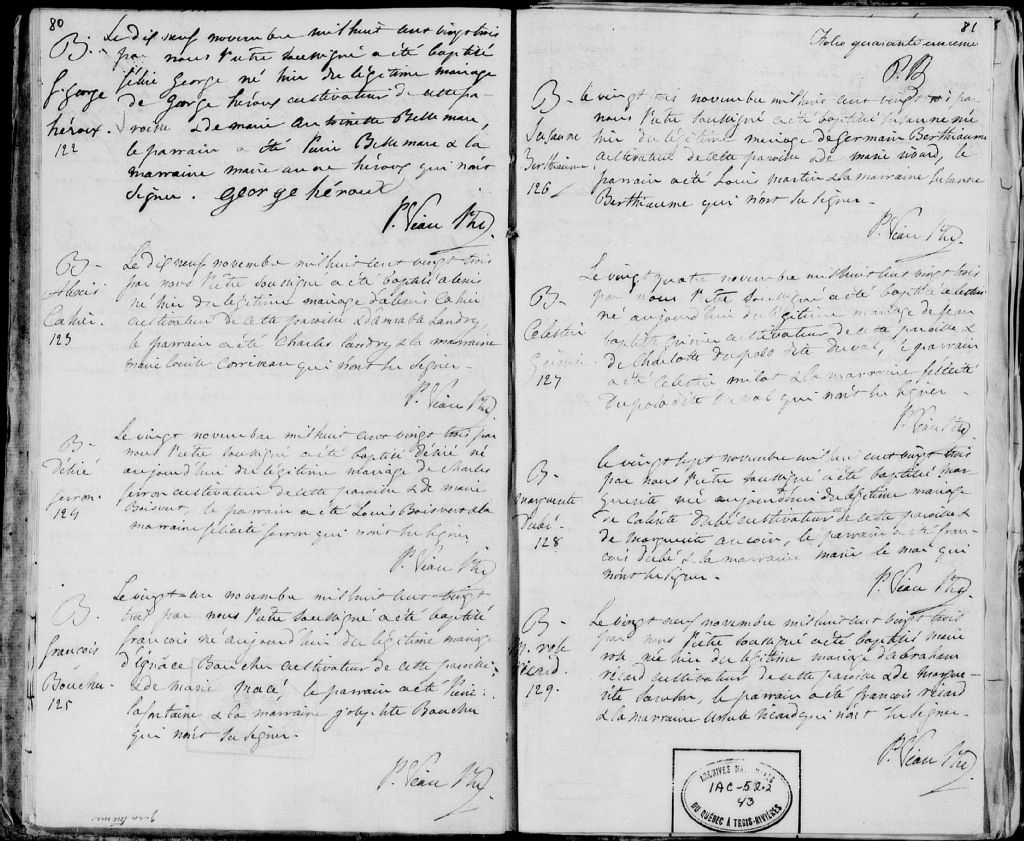 80
B.
f. george
héroux
122
Le dix neuf novembre mil huit cent vingt trois
par nous Prêtre soussigné a été baptisé
félix George né hier du légitime mariage
de George héroux cultivateur de cette pa-
roisse & de marie antoinette Bellemare,
le parrain a été Pierre Bellemare & la
marraine marie anne héroux qui n'ont
signer. george héroux
P. Veau Ptre
B-
Alexis
Cahir
123
Le dix neuf novembre mil huit cent vingt trois
par nous Prêtre soussigné a été baptisé alexis
né hier du légitime mariage d'alexis Cahir
cultivateur de cette paroisse & d'amable Landry,
le parrain a été Charles landry & la marraine
marie louise Corriveau qui n'ont su signer -
P. Veau Ptre
B-
Désiré
ferron
124
Le vingt novembre mil huit cent vingt trois par
nous Prêtre soussigné a été baptisé désiré né
aujourd'hui du légitime mariage de Charles
ferron cultivateur de cette paroisse & de marie
Boisvert, le parrain a été Louis Boisvert & la
marraine félicité ferron qui n'ont su signer
P. Veau Ptre
B.
françois
Boucher.
125
Le vingt un novembre mil huit cent vingt
trois par nous Prêtre soussigné a été baptisé
françois né aujourd'hui du légitime mariage
d'ignace Boucher cultivateur de cette paroisse
& de marie le parrain a été Pierre
lafontaine, & la marraine Boucher
qui n'ont su signer.
P. Veau Ptre
81
Folio quarante unieme
P. B
B-
Susanne
Berthiaume
126
Le vingt trois novembre mil huit cent vingt trois par
nous Prêtre soussigné a été baptisé susanne née
hier du légitime mariage de germain Berthiaume
cultivateur de cette paroisse & de marie sicard, le
parrain a été Louis martin & la marraine susanne
Berthiaume qui n'ont su signer -
P. Veau Ptre
B-
Célestin
127
Le vingt quatre novembre mil huit cent vingt trois
par nous Prêtre soussigné a été baptisé célestin
né aujourd'hui du légitime mariage de jean
baptiste cultivateur de cette paroisse &
de Charlotte dit duval, le parrain
a été Celestin milot & la marraine félicité
dit duval qui n'ont su signer -
P. Veau Ptre
B-
marguerite
Dubé.
128
Le vingt sept novembre mil huit cent vingt trois
par nous Prêtre soussigné a été baptisé mar-
guerite née aujourd'hui du légitime mariage
de Calixte Dubé cultivateur de cette paroisse &
de marguerite aucoin, le parrain a été fran-
çois dubé & la marraine marie le mai qui
n'ont su signer -
P. Veau Ptre
B-
m. rose
ricard
129.
Le vingt neuf novembre mil huit cent vingt trois
par nous Prêtre soussigné a été baptisé marie
rose née hier du légitime mariage d'abraham
ricard cultivateur de cette paroisse & de margue-
rite le parrain a été françois ricard
& la marraine ursule ricard qui n'ont su signer.
P. Veau Ptre
ARCHIVES NATIONALES
1AC-52.2
43
DU QUÉBEC À TROIS-RIVIÈRES